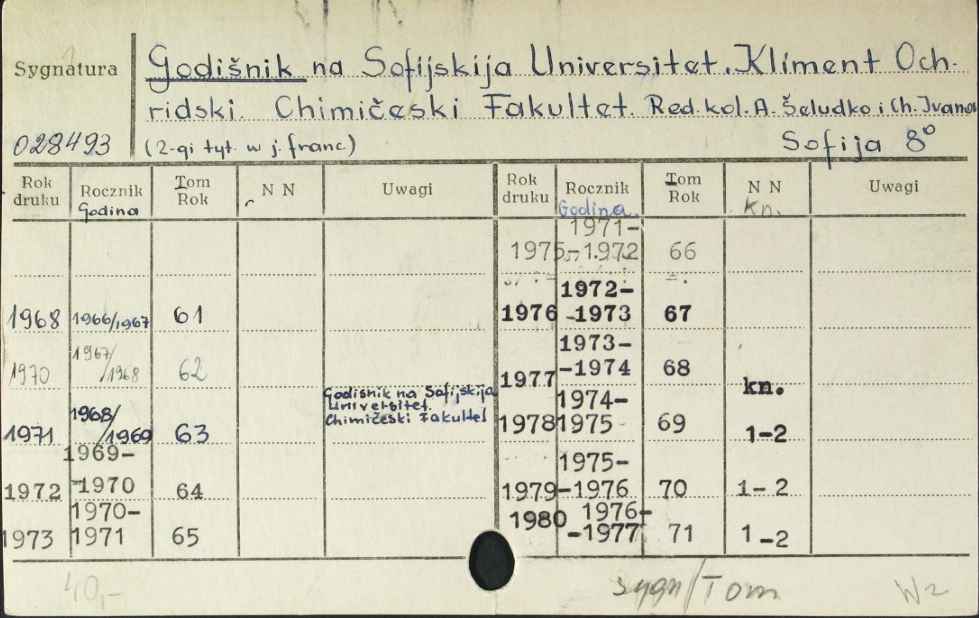 Sygnatura
028493
Godišnik na Sofijskija Universitet. Kliment Och-
ridski. Chimičeski Fakultet. Red. kol. A. Šeludko i Ch. Ivana
(2-gi tyt. w j. franc) Sofija 8°
Rok druku Rocznik Godina Tom Rok N N Uwagi Rok druku Rocznik Godina Tom Rok N N Kn. Uwagi
1975 1971-1972 66
1968 1966/1967 61
1976 1972-1973 67
1970 1967/1968 62
1977 1973-1974 68
1971 1968/1969 63 Godisnik na Sofijskija
Universitet.
Chimičeski Fakultet
1978 1974-1975 69 kn. 1-2
1972 1969-1970 64
1979 1975-1976 70 1-2
1973 1970-1971 65
1980 1976-1977 71 1-2
40,-
sygn/Tom